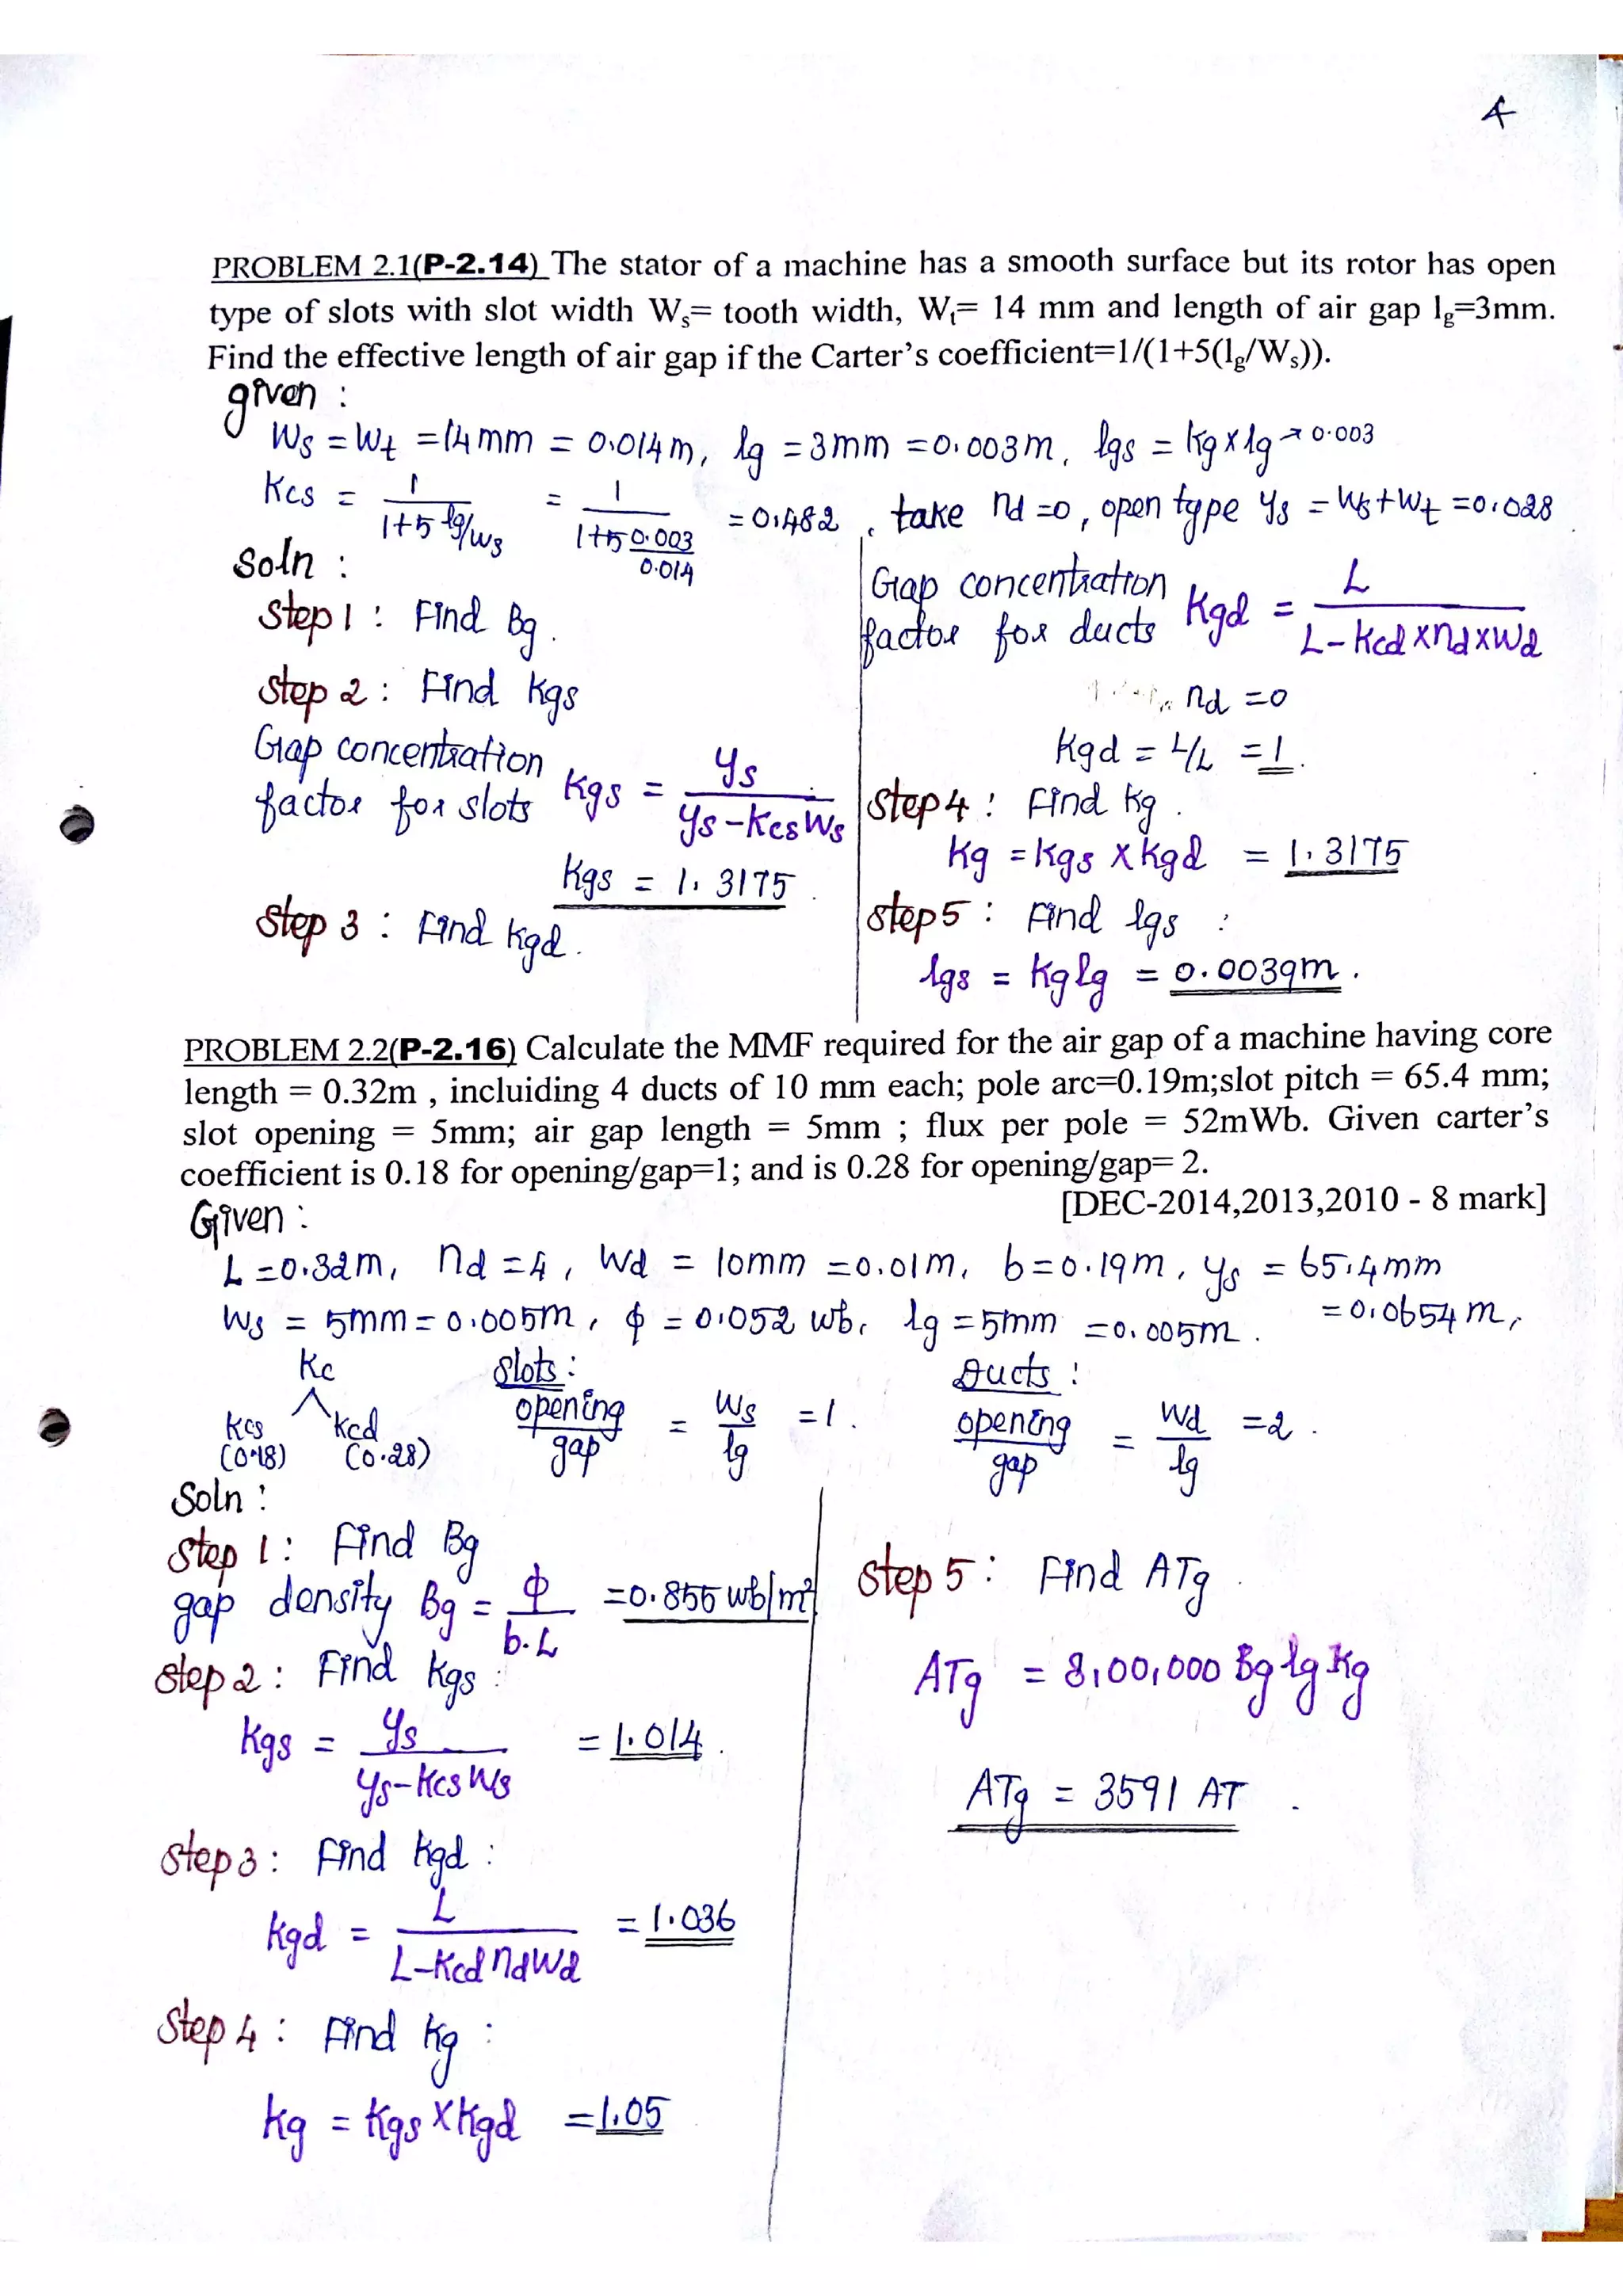 4
PROBLEM 2.1(P-2.14) The stator of a machine has a smooth surface but its rotor has open
type of slots with slot width Ws= tooth width, Wt= 14 mm and length of air gap lg=3mm.
Find the effective length of air gap if the Carter's coefficient=1/(1+5(lg/Ws)).
given :
Ws = Wt = 14mm = 0.014m, lg = 3mm = 0.003m, lgs = kg x lg → 0.003
Kcs = 1/(1+5 lg/ws) = 1/(1+5 0.003/0.014) = 0.482, take nd =0, open type ys = Ws+Wt =0.028
Soln :
Step 1 : Find Bg.
Step 2 : Find Kgs
Gap concentration
factor for slots Kgs = ys/(ys-KcsWs)
Kgs = 1.3175
Step 3 : Find Kgd.
Gap concentration
factor for ducts Kgd = L/(L-Kcd x nd x Wd)
nd =0
Kgd = L/L = 1.
Step 4 : Find Kg.
Kg = Kgs x Kgd = 1.3175
Step 5 : Find lgs :
lgs = Kg lg = 0.0039m.
PROBLEM 2.2(P-2.16) Calculate the MMF required for the air gap of a machine having core
length = 0.32m , incluiding 4 ducts of 10 mm each; pole arc=0.19m;slot pitch = 65.4 mm;
slot opening = 5mm; air gap length = 5mm ; flux per pole = 52mWb. Given carter's
coefficient is 0.18 for opening/gap=1; and is 0.28 for opening/gap= 2.
[DEC-2014,2013,2010 - 8 mark]
Given :
L =0.32m, nd =4, Wd = 10mm =0.01m, b=0.19m, ys = 65.4mm
= 0.0654m,
Ws = 5mm = 0.005m, ϕ = 0.052 wb, lg = 5mm =0.005m.
Kc
Kcs Kcd
(0.18) (0.28)
Slots :
opening/gap = Ws/lg = 1.
Ducts :
opening/gap = Wd/lg =2.
Soln :
Step 1 : Find Bg
gap density Bg = ϕ/b.L =0.855 wb/m²
Step 2 : Find Kgs :
Kgs = ys/(ys-KcsWs) = 1.014.
Step 3 : Find Kgd :
Kgd = L/(L-Kcd nd Wd) = 1.036
Step 4 : Find Kg :
Kg = Kgs x Kgd =1.05
Step 5 : Find ATg
ATg = 8,00,000 Bg lg Kg
ATg = 3591 AT.